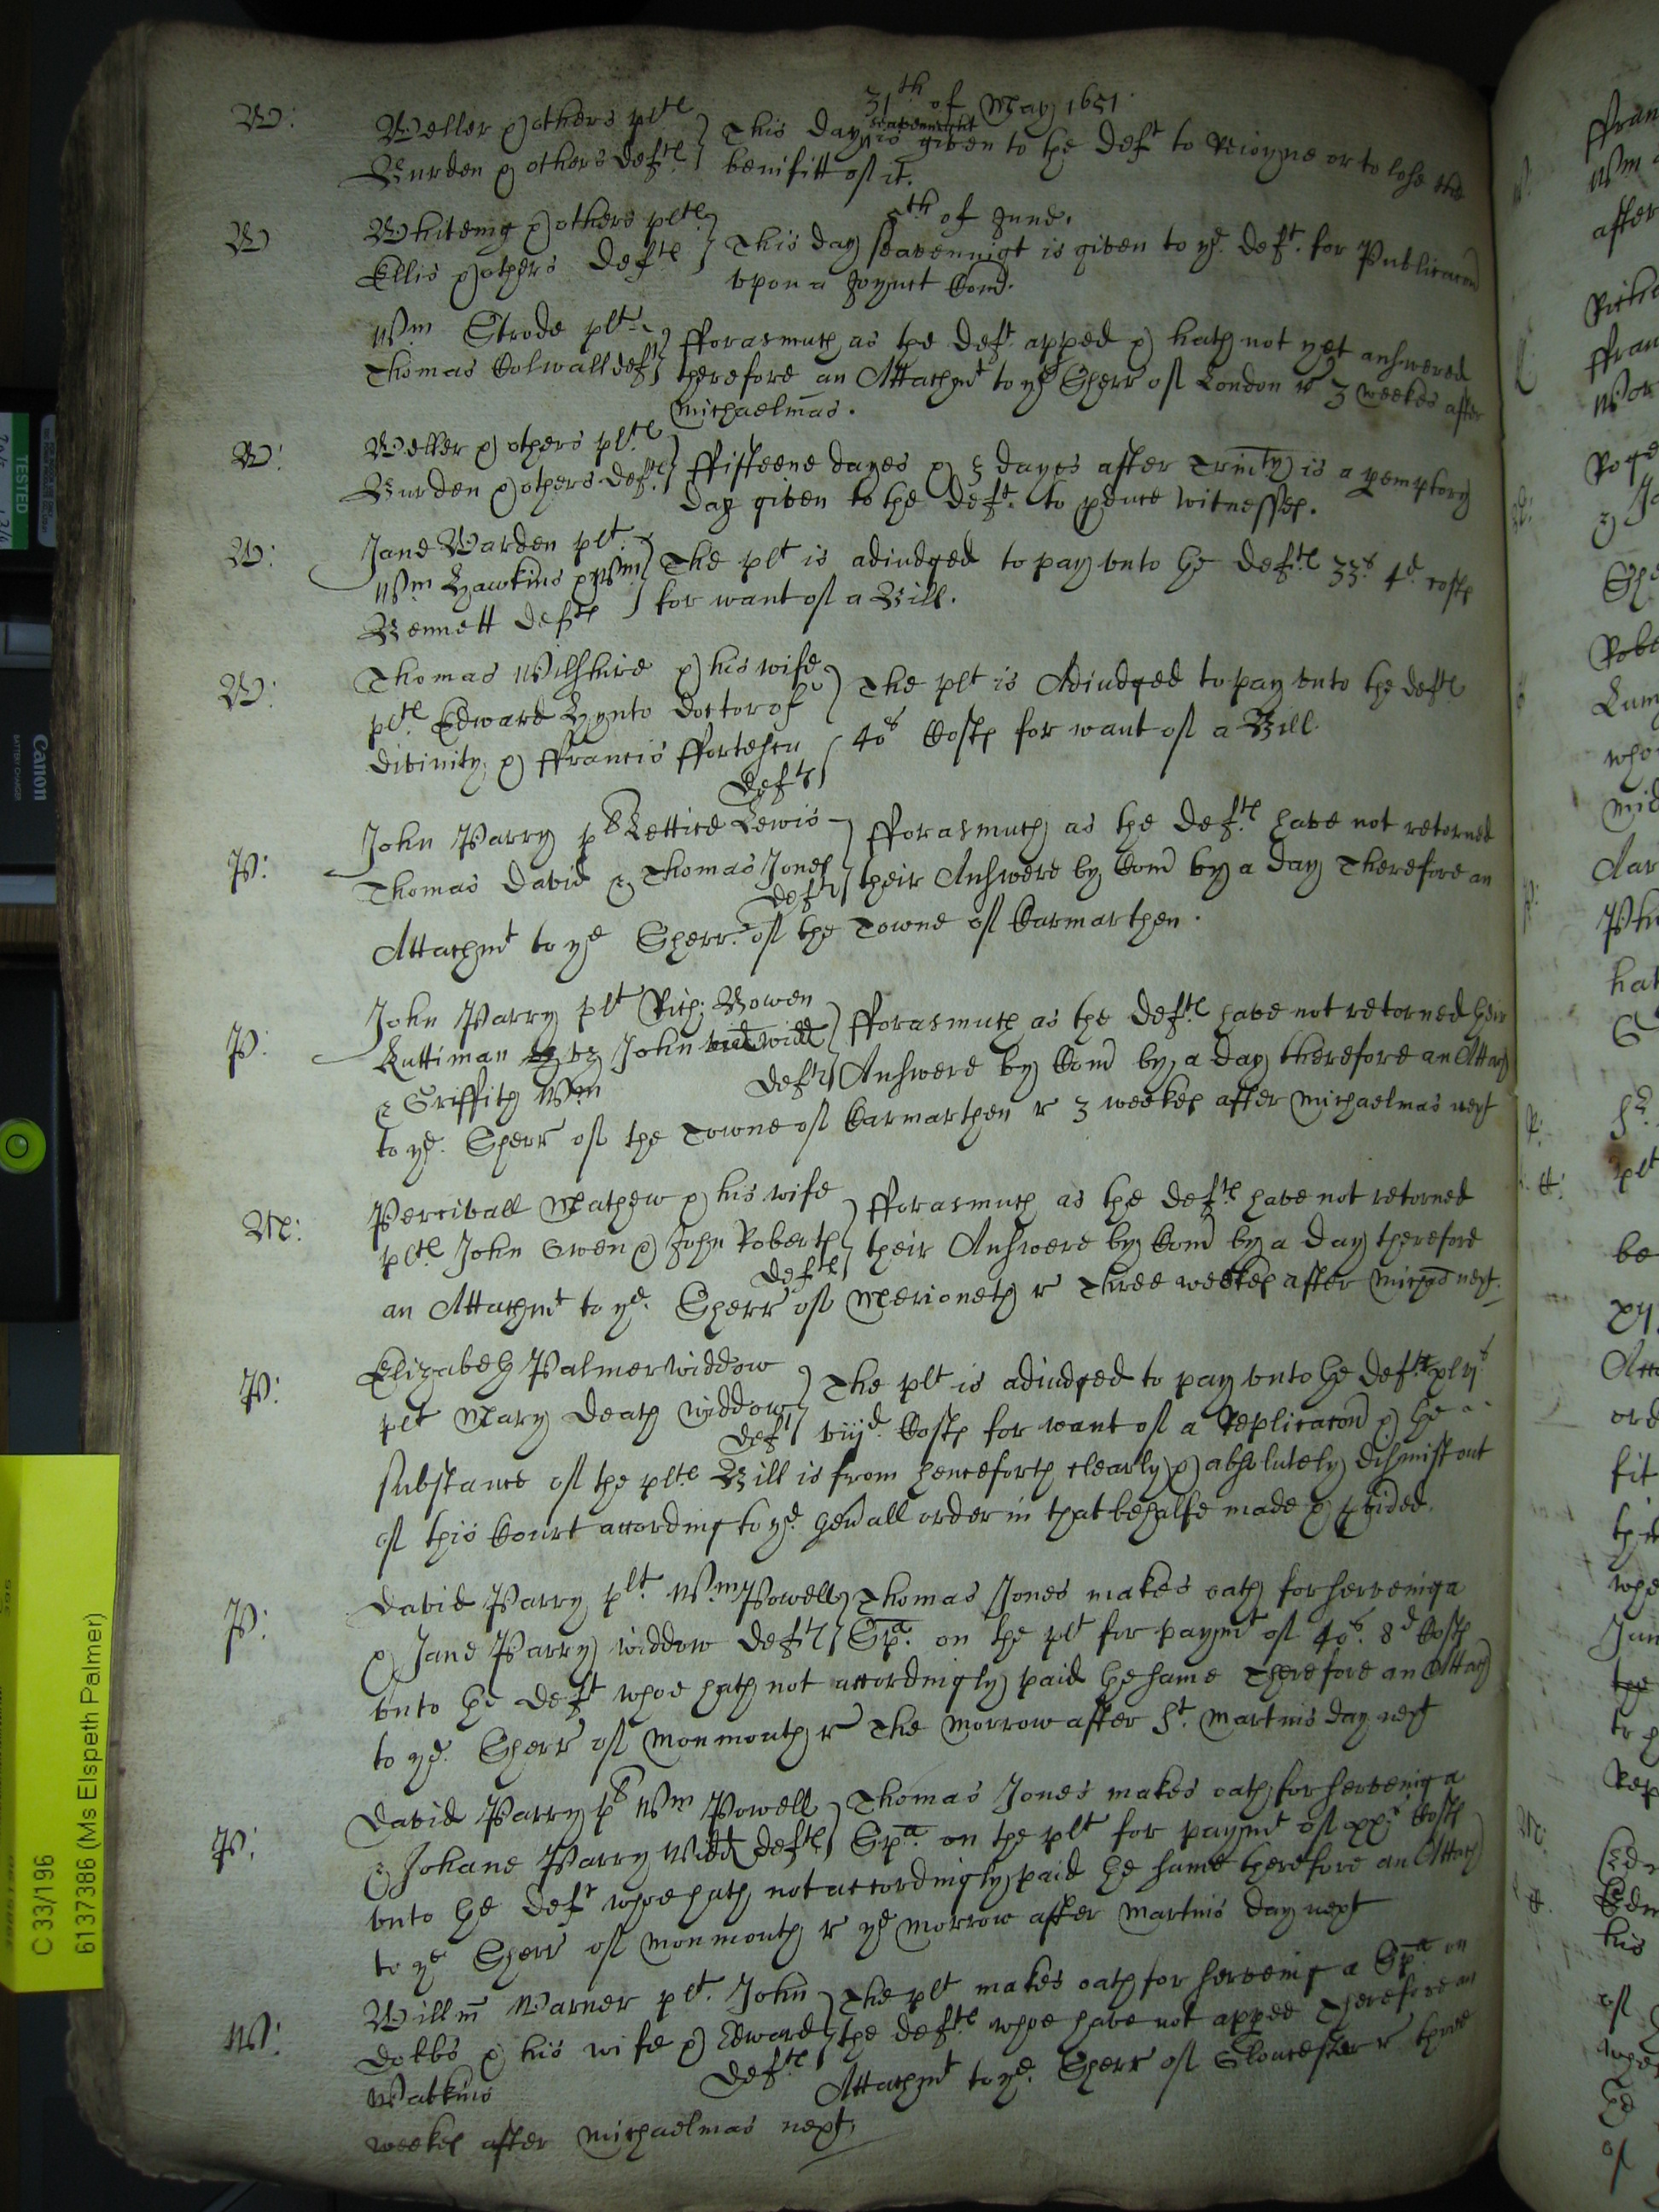 31th of May 1651
W: Weller & others plts This day seavennight is given to the Deft to Reioyne or to lose the
Burden & others Defts benifitt of it.
5th of June.
W Whiteing & others plts This day seavennigt is given to ye Deft. for Publicacon
Ellis & others Defts vpon a Joynct Com.
Wm Strode plt fforasmuch as the Deft apped & hath not yet answered
Thomas Colwall deft therefore an Attachmt to ye Sherr of London r 3 weekes after
Michaelmas.
W: Weller & others plts ffifteene dayes & 5 dayes after Trinity is a pemptory
Burden & others Defts day given to the Deft. to pduce witnesses.
W: Jane Warden plt. The plt is adiudged to pay vnto the Defts 33s 4d costs
Wm Hawkins & Wm
Bennett Defts for want of a Bill.
W: Thomas Wilshire & his wife The plt is Adiudged to pay vnto the Defts
plts Edward Hynto Doctor of
divinity & ffrancis ffortescu 40s Costs for want of a Bill
Defts
P: John Parry plt Lettice Lewis fforasmuch as the Defts have not retorned
Thomas David & Thomas Jones their Answere by Com by a day Therefore an
Defts
Attachmt to ye Sherr of the Towne of Carmarthen.
P: John Parry plt Rich: Bowen fforasmuch as the Defts have not retorned their
John Defts Answere by Com by a day therefore an Attach
& Griffith Wm
to ye Sherr of the Towne of Carmarthen r 3 weekes after Michaelmas next
M: Percivall Mathew & his wife fforasmuch as the Defts have not retorned
plts John Owen & John Roberts their Answere by Com by a day therefore
Defts
an Attachmt to ye Sherr of Merioneth r Three weekes after Michas next.
P: Elizabeth Palmer widdow The plt is adiudged to pay vnto the Deft xlvjs
plt Mary Death widdow viijd. Costs for want of a Replicacon & the
Deft
substance of the plts Bill is from henceforth clearly & absolutely dismist out
of this Court according to ye genall order in that behalfe made & pvided.
P: David Parry plt Wm Powell Thomas Jones makes oath for serveing a
& Jane Parry widdow Defts Spa. on the plt for paymt of 40s. 8d Costs
vnto the Deft whoe hath not accordingly paid the same Therefore an Attach
to ye Sherr of Monmouth r The Morrow after St. Martins day next
P: David Parry plt Wm Powell Thomas Jones makes oath for serveing a
& Johane Parry Widd Defts Spa. on the plt for paymt of xxs Costs
vnto the Deft whoe hath not accordingly paid the same therefore an Attach
to ye Sherr of Monmouth r ye Morrow after Martins day next
W: Willm Warner plt. John The plt makes oath for serveing a Spa on
Dobbs & his wife & Edward the Defts whoe have not apped Therefore an
Watkins Defts Attachmt to ye Sherr of Gloucester r three
weekes after Michaelmas next,
C 33/196
6137386 (Ms Elspeth Palmer)
TESTED
Canon
BATTERY CHARGER